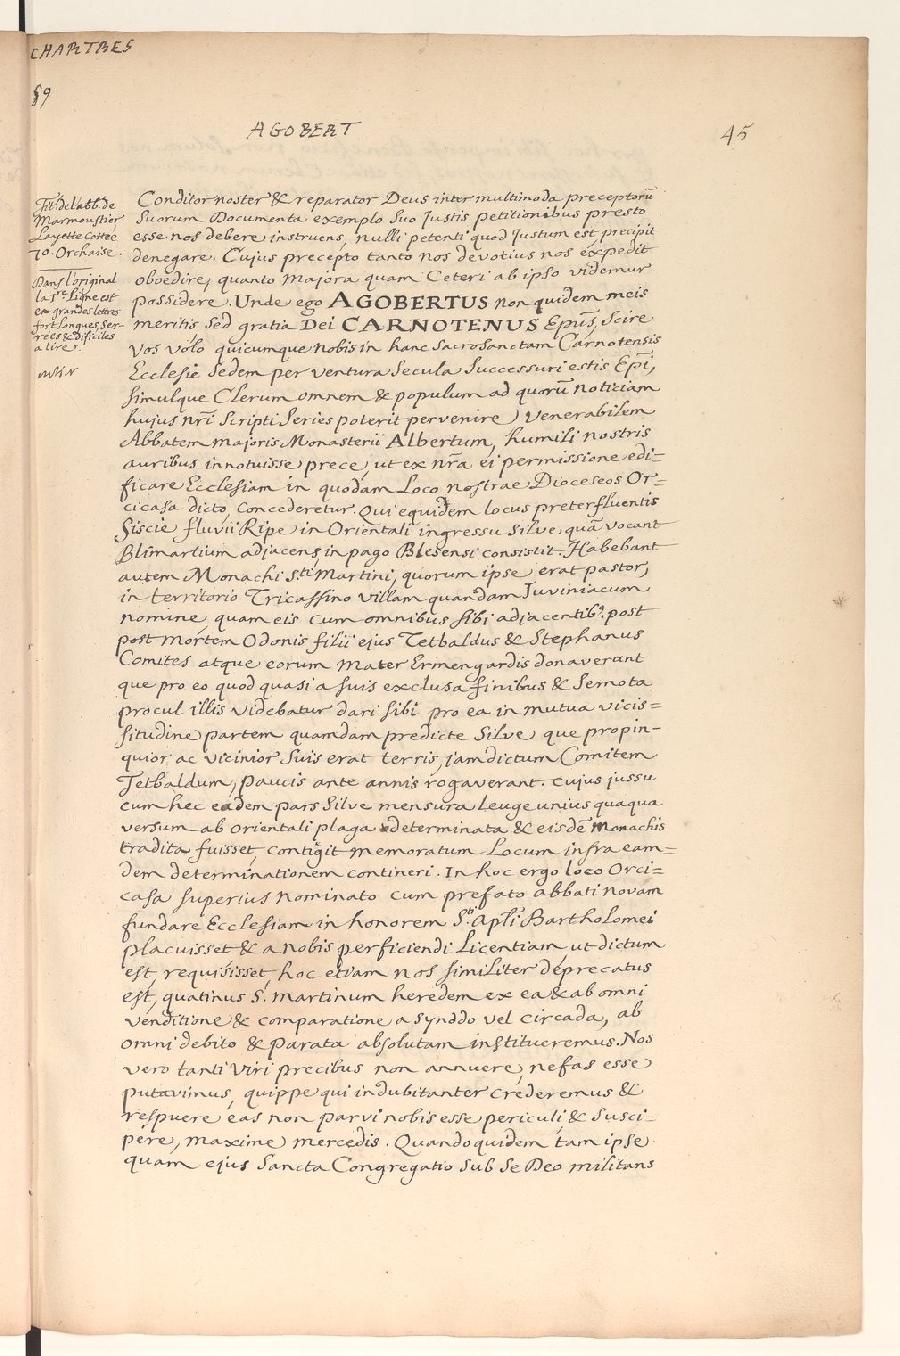 CHARTRES
59
AGOBERT
45
Tit. de l'abb. de
Marmoustier
Layette cottée
70. Orchaise.
Dans l'original
la 1re. Ligne est
en grandes lettres
fort longues, ser-
rées & difficiles
a lire.
Conditor noster & reparator Deus inter multimoda preceptorū
Suorum Documenta exemplo Suo Justis petitionibus presto
esse nos debere instruens, nulli petenti quod Justum est, precipit
denegare. Cujus precepto tanto nos devotius nos expedit
obœdire, quanto majora quam Ceteri ab ipso videmur
possidere. Unde ego AGOBERTUS non quidem meis
meritis Sed gratia Dei CARNOTENUS Epūs, Scire
vos volo quicumque nobis in hanc Sacrosanctam Carnotensis
Ecclesie Sedem per ventura Secula Successuri estis Epī,
Simulque Clerum omnem & populum ad quorū notitiam
hujus nrī Scripti Series poterit pervenire, Venerabilem
Abbatem majoris Monasterii Albertum, humili nostris
auribus innotuisse prece, ut ex nrā ei permissione edi-
ficare Ecclesiam in quodam Loco nostrae Dioceseos Or=
cicasa dicto, Concederetur. Qui equidem locus preterfluentis
Siscie fluvii Ripe in Orientali ingressu Silve, quā vocant
Blimartium adjacens, in pago Blesensi consistit. Habebant
autem Monachi S.ti Martini, quorum ipse erat pastor,
in territorio Tricassino villam quandam Juviniacum
nomine, quam eis cum omnibus sibi adjacentib9. post
post mortem Odonis filii ejus Tetbaldus & Stephanus
Comites atque eorum Mater Ermengardis donaverant
que pro eo quod quasi a suis exclusa finibus & Semota
procul illis videbatur dari sibi pro ea in mutua vicis=
situdine partem quamdam predicte Silve, que propin-
quior, ac vicinior Suis erat terris, jamdictum Comitem
Tetbaldum, paucis ante annis rogaverant. cujus jussu
cum hec eadem pars Silve mensura leuge unius quaqua
versum ab orientali plaga determinata & eisdē Monachis
tradita fuisset, contigit memoratum Locum infra eam=
dem determinationem contineri. In hoc ergo loco Orci=
casa superius nominato cum prefato abbati novam
fundare Ecclesiam in honorem S.ti Aplī Bartholomei
placuisset & a nobis perficiendi Licentiam ut dictum
est, requisisset, hoc etiam nos similiter deprecatus
est, quatinus S. Martinum heredem ex ea & ab omni
venditione & comparatione a Synodo vel circada, ab
omni debito & parata absolutam institueremus. Nos
vero tanti Viri precibus non annuere, nefas esse
putavimus, quippe qui indubitanter crederemus &
respuere eas non parvi nobis esse periculi & Susci-
pere, maxime mercedis. Quandoquidem tam ipse
quam ejus Sancta Congregatio Sub Se Deo militans